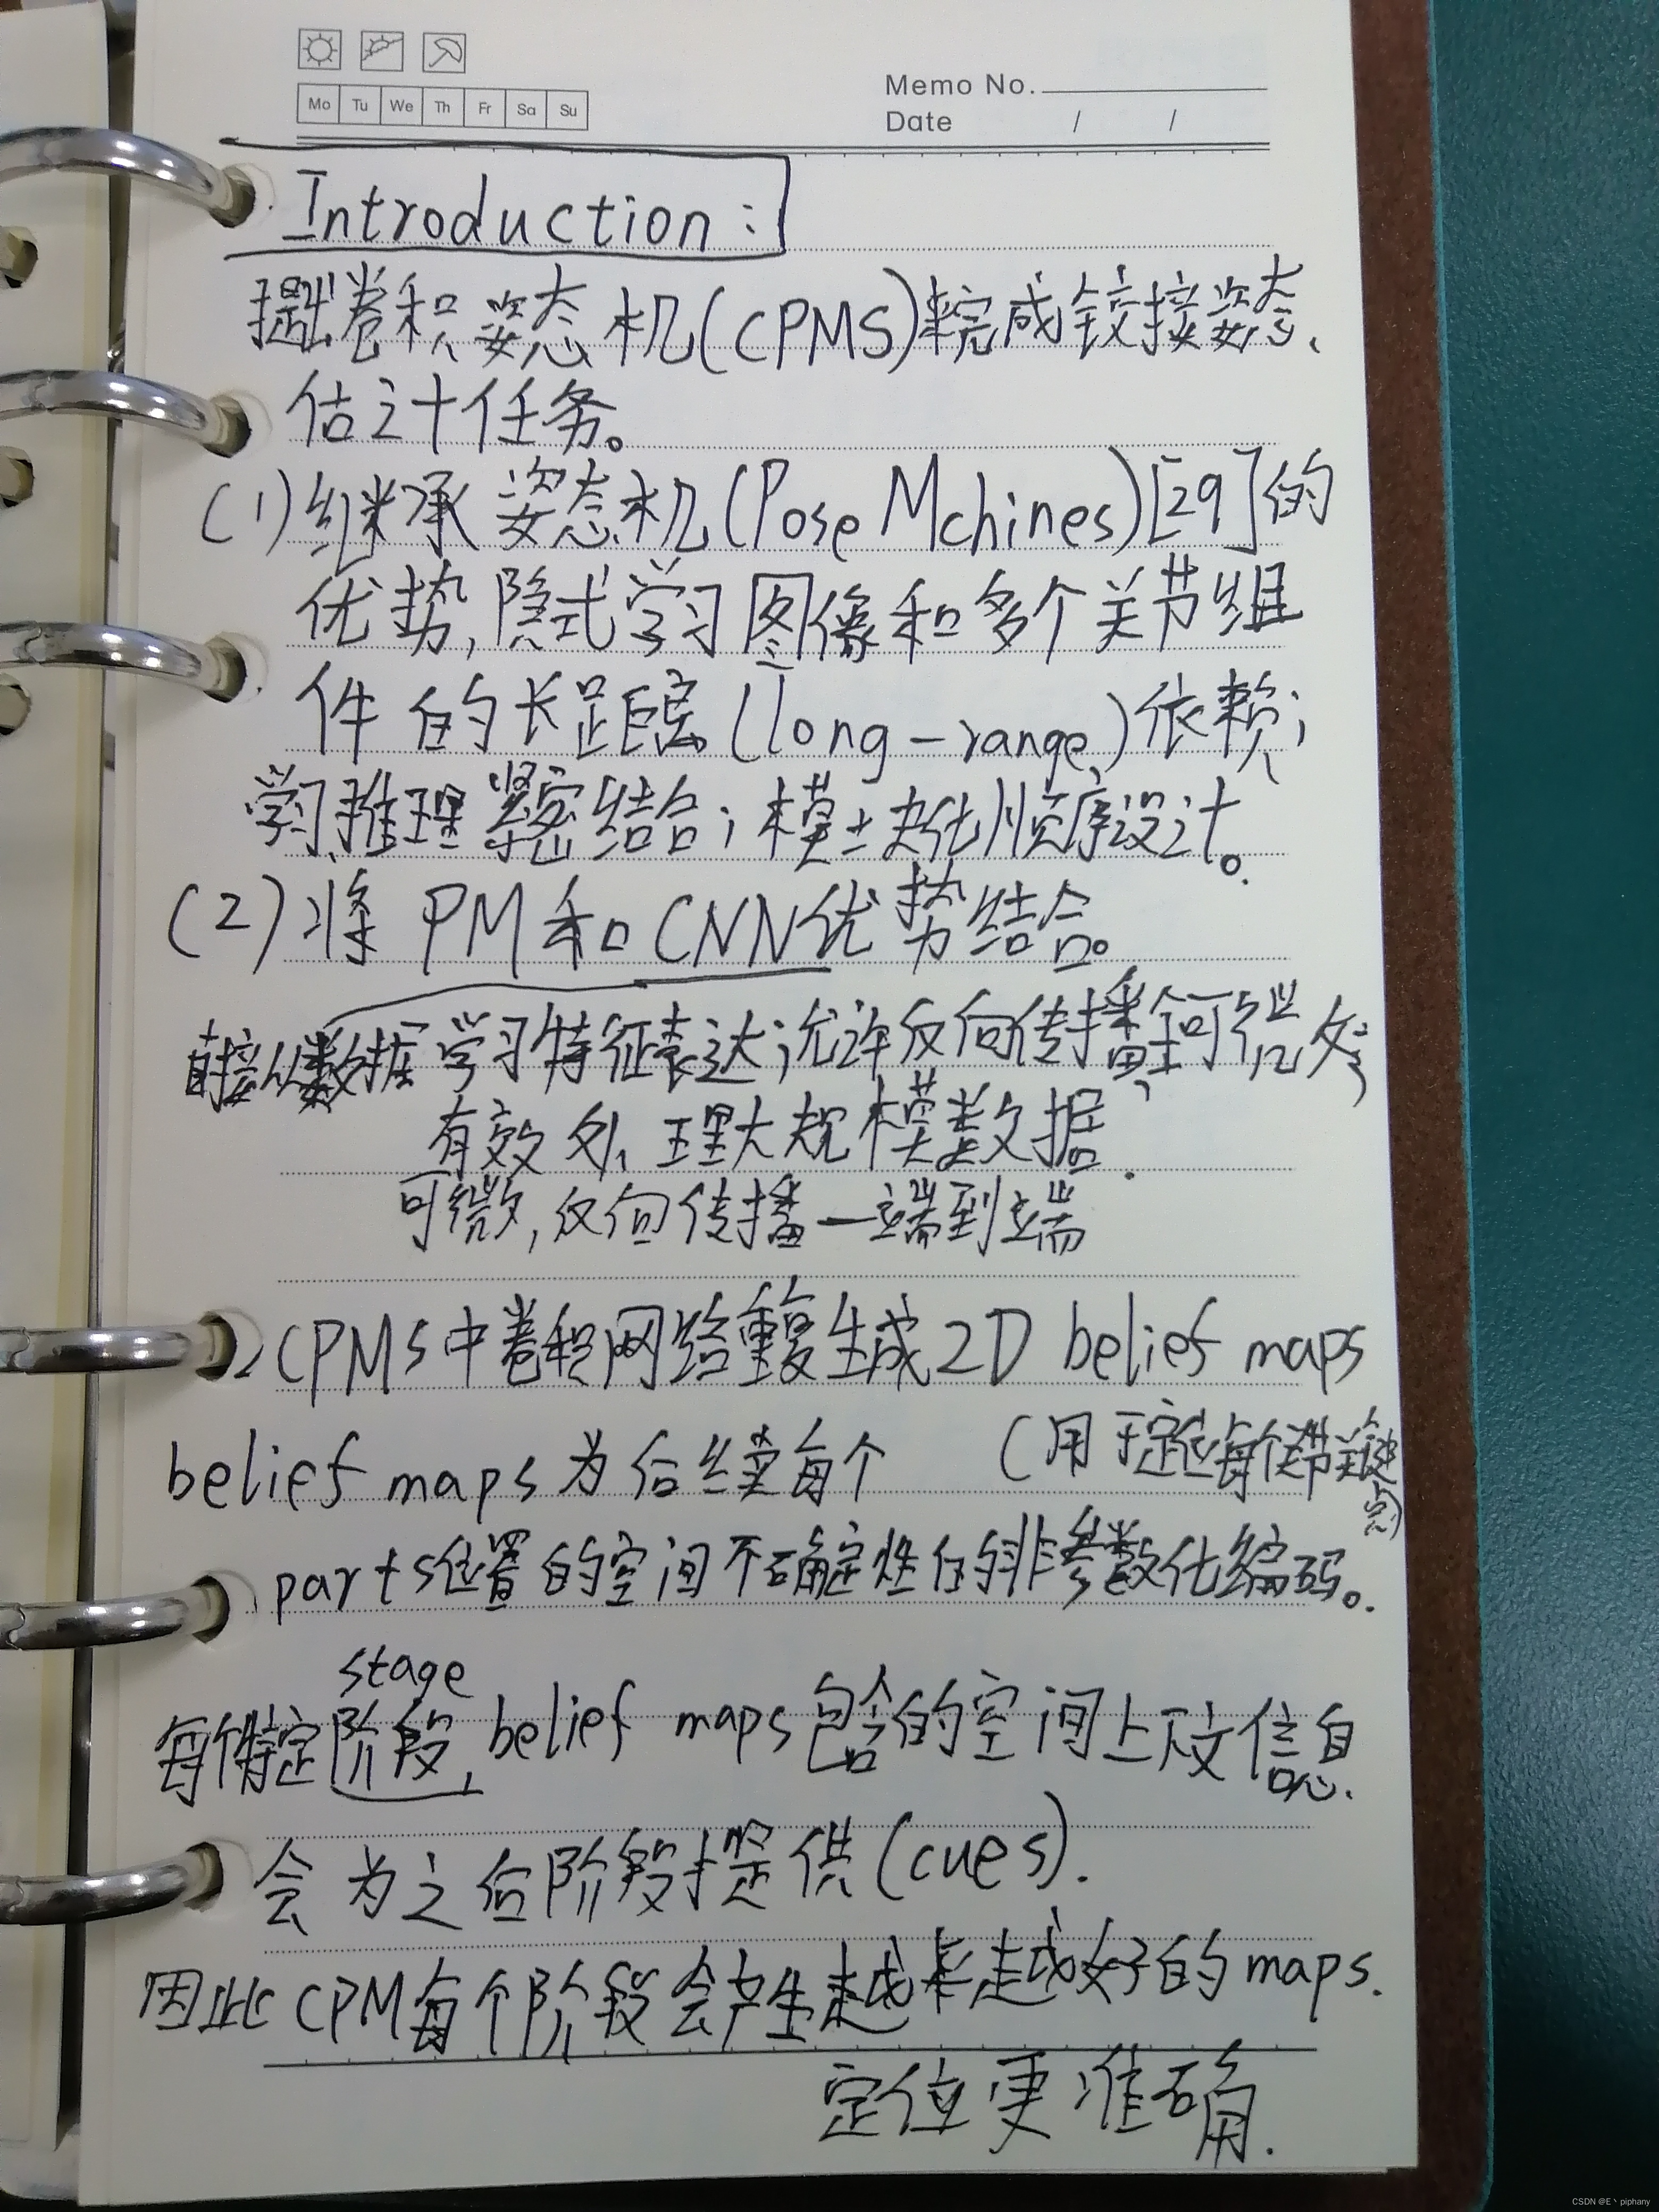 Mo Tu We Th Fr Sa Su
Memo No.
Date / /
Introduction:
提出卷积姿态机(CPMS)来完成铰接姿态
估计任务。
(1)继承姿态机(Pose Mchines)[29]的
优势,隐式学习图像和多个关节组
件的长距离(long-range)依赖;
学习推理紧密结合;模块化顺序设计。
(2)将PM和CNN优势结合。
直接从数据学习特征表达;允许反向传播;
有效处理大规模数据.
可微,反向传播—端到端
2 CPMS中卷积网络重复生成2D belief maps
(用于定位每个关节关键点)
belief maps为后续每个
parts位置的空间不确定性的非参数化编码。
stage
每个特定阶段,belief maps包含的空间上下文信息.
会为之后阶段提供(cues).
因此CPM每个阶段会产生越来越好的maps.
定位更准确.
CSDN @E丶piphany